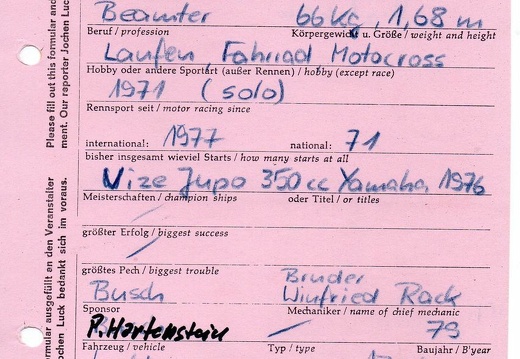 Please fill out this formular and
ment. Our reporter Jochen Luc
ormular ausgefüllt an den Veranstalter
ochen Luck bedankt sich im voraus.
Beamter 66 kg, 1,68 m
Beruf / profession Körpergewicht u. Größe / weight and height
Laufen, Fahrrad Motocross
Hobby oder andere Sportart (außer Rennen) / hobby (except race)
1971 (solo)
Rennsport seit / motor racing since
international: 1977 national: 71
bisher insgesamt wieviel Starts / how many starts at all
Vize Jupo 350 cc Yamaha, 1976
Meisterschaften / champion ships oder Titel / or titles
größter Erfolg / biggest success
größtes Pech / biggest trouble
Bruder
Busch Winfried Rack
Sponsor Mechaniker / name of chief mechanic
P. Hartenstein 79
Fahrzeug / vehicle Typ / type Baujahr / B'year